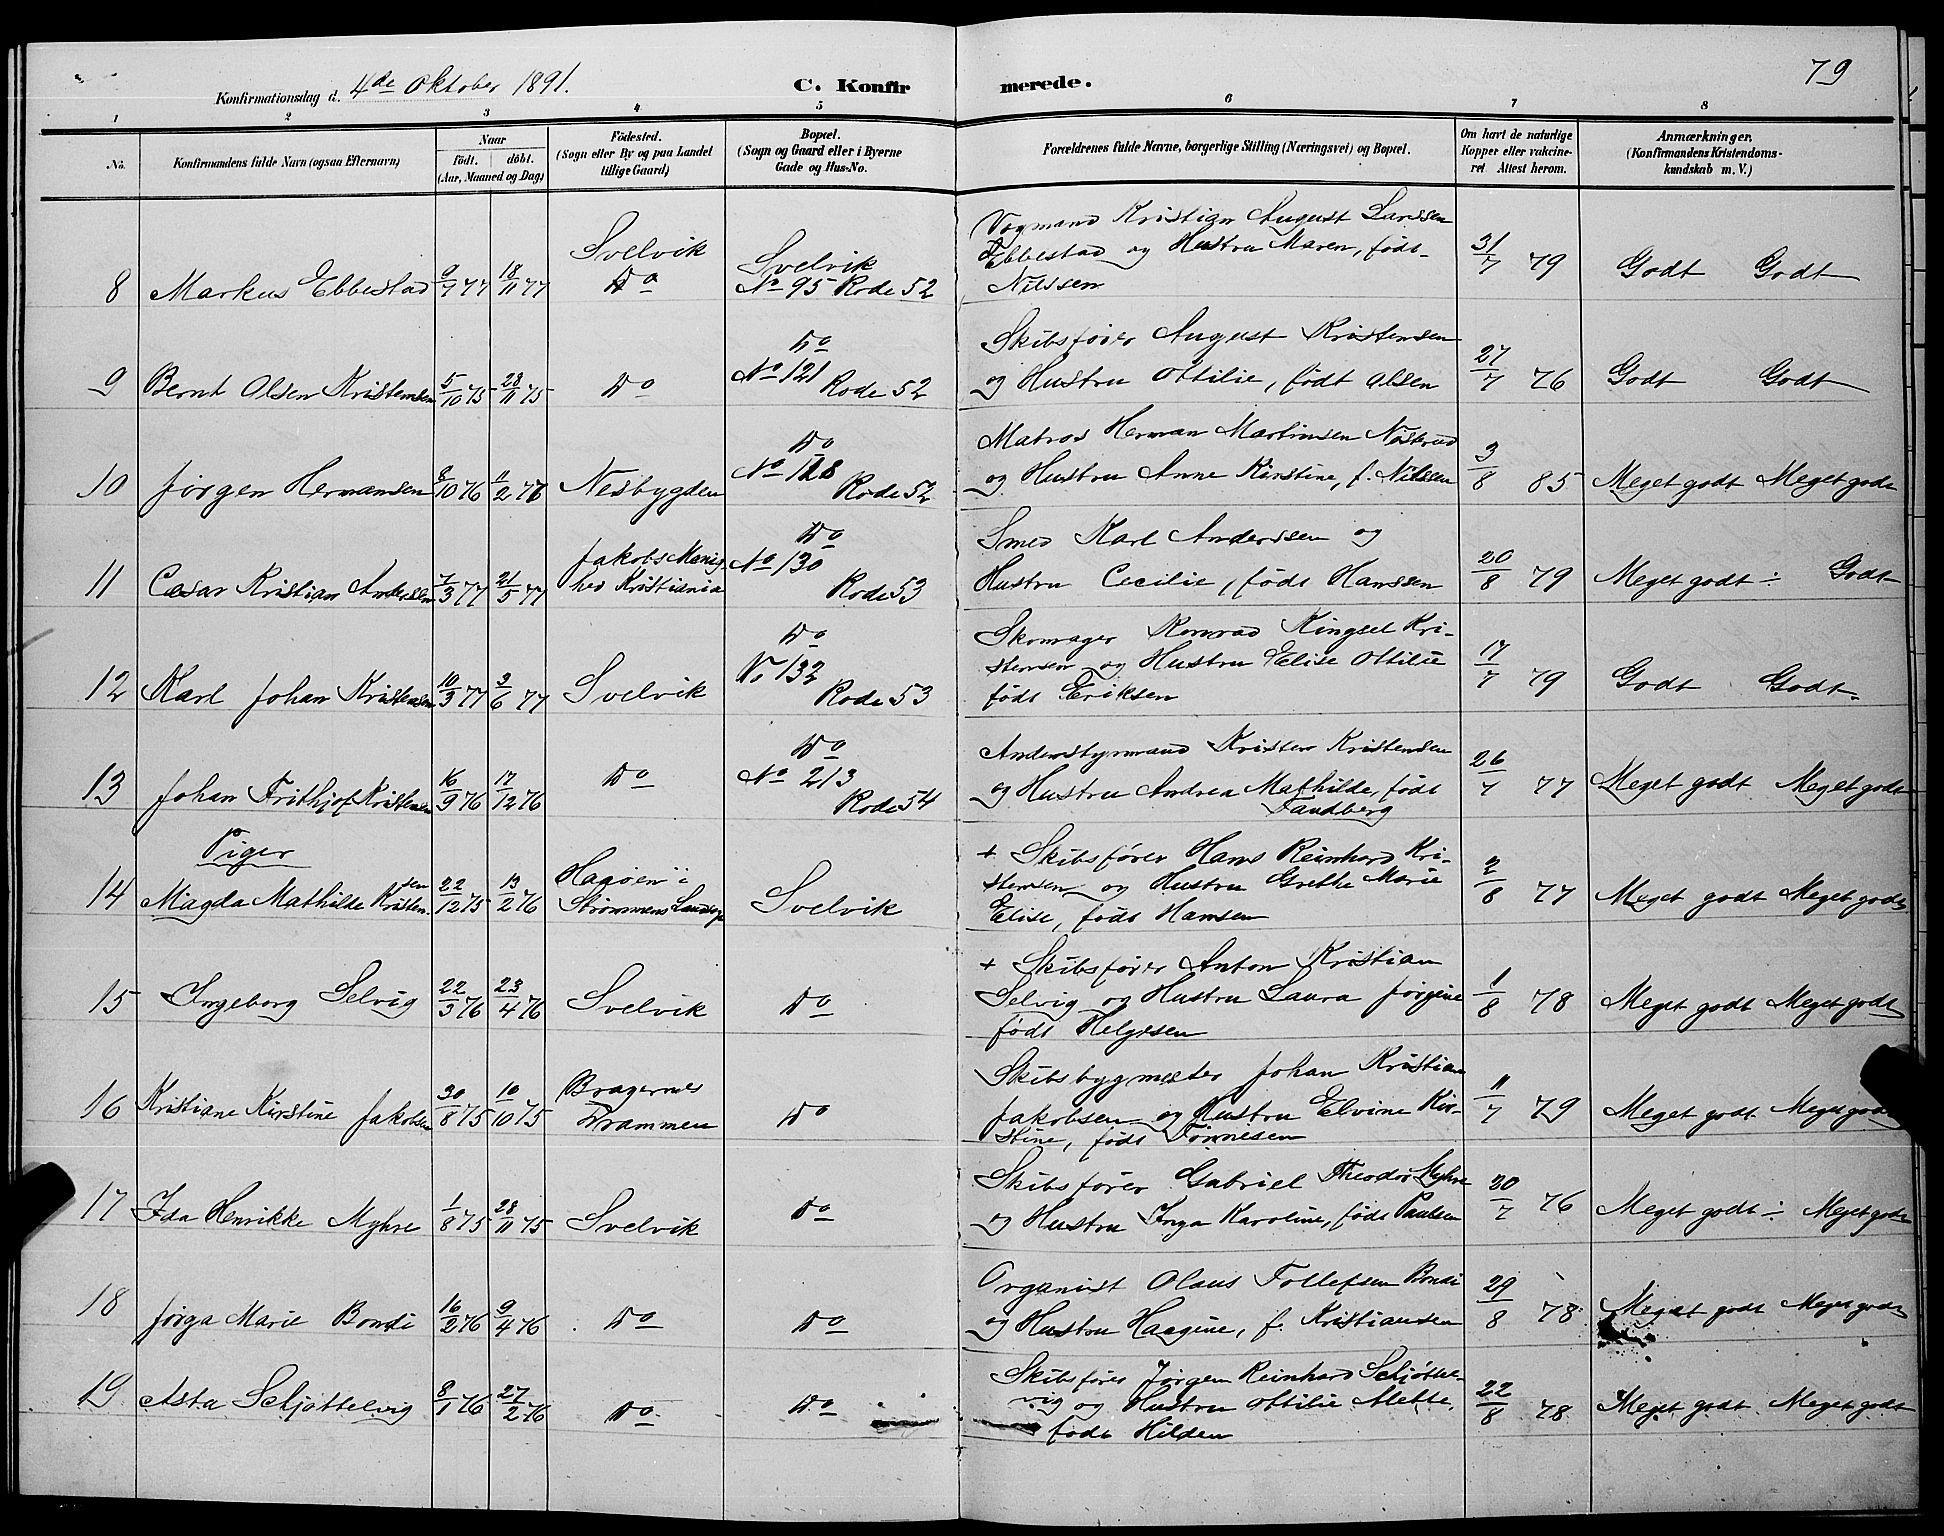 79
Konfirmationsdag d. 4de Oktober 1891.
C. Konfirmerede.
1 2 3 4 5 6 7 8
No.
Konfirmandens fulde Navn (ogsaa Efternavn)
Naar
födt. döbt.
(Aar, Maaned og Dag)
Födested.
(Sogn eller By og paa Landet
tillige Gaard)
Bopæl.
(Sogn og Gaard eller i Byerne
Gade og Hus-No.
Forældrenes fulde Navne, borgerlige Stilling (Næringsvei) og Bopæl.
Om havt de naturlige
Kopper eller vakcine-
ret Attest herom.
Anmærkninger.
(Konfirmandens Kristendoms-
kundskab m. V.)
8 Markus Ebbestad 9/7 77 18/11 77
Svelvik
Do
Svelvik
No 95 Rode 52
Vogmand Kristian August Larssen
Ebbestad og Hustru Maren, født
Nilssen
31/7 79 Godt Godt
9 Bernt Olsen Kristensen 5/10 75 28/11 75 Do
Do
No 121
Rode 52
Skibsfører August Kristensen
og Hustru Ottilie, født Olsen
27/7 76 Godt Godt
10 Jørgen Hermansen 8/10 76 11/2 77 Nesbygden
Do
No 128
Rode 52
Matros Herman Martinsen
og Hustru Anne Kirstine, f. Nilssen
3/8 85 Meget godt Meget godt
11 Cæsar Kristian Anderssen 7/3 77 21/5 77
Jakobs Menig-
hed Kristiania
Do
No 130
Rode 53
Smed Karl Anderssen og
Hustru Cecilie, født Hanssen
20/8 79 Meget godt ÷ Godt
12 Karl Johan Kristensen 10/3 77 3/6 77 Svelvik
Do
No 132
Rode 53
Skomager Konrad Ringsel Kri-
stensen og Hustru Elise Ottilie
født Eriksen
17/7 79 Godt Godt
13 Johan Frithjof Kristensen 16/9 76 17/12 76 Do
Do
No 213
Rode 54
Anderstyrmand Kristen Kristensen
og Hustru Andrea Mathilde, født
Tandberg
26/7 77 Meget godt Meget godt
Piger
14 Magda Mathilde Kristensen 22/12 75 13/2 76
Hagøen i
Strømmens Landsogn
Svelvik
+ Skibsfører Hans Reinhard Kri-
stensen og Hustru Grethe Marie
Elise, født Hansen
2/8 77 Meget godt Meget godt
15 Ingeborg Selvig 22/3 76 23/4 76 Svelvik Do
+ Skibsfører Anton Kristian
Selvig og Hustru Laura Jørgine
født Helgesen
1/8 78 Meget godt Meget godt
16 Kristiane Kirstine Jakobsen 30/8 75 10/10 75
Bragernes
Drammen
Do
Skibsbygmester Johan Kristian
Jakobsen og Hustru Elvine Kir-
stine, født Tønnesen
11/7 79 Meget godt Meget godt
17 Ida Henrikke Myhre 1/8 75 28/11 75 Svelvik Do
Skibsfører Gabriel Theodor Myhre
og Hustru Inga Karoline, født Paulsen
20/7 76 Meget godt ÷ Meget godt
18 Jørga Marie Bondi 16/2 76 9/4 76 Do Do
Organist Olaus Tollefsen Bondi
og Hustru Haagine, f. Kristiansen
29/8 78 Meget godt Meget godt
19 Asta Schjøttelvig 8/1 76 27/2 76 Do Do
Skibsfører Jørgen Reinhard Schjøttel-
vig og Hustru Ottilie Mette,
født Hilden
22/8 78 Meget godt Meget godt